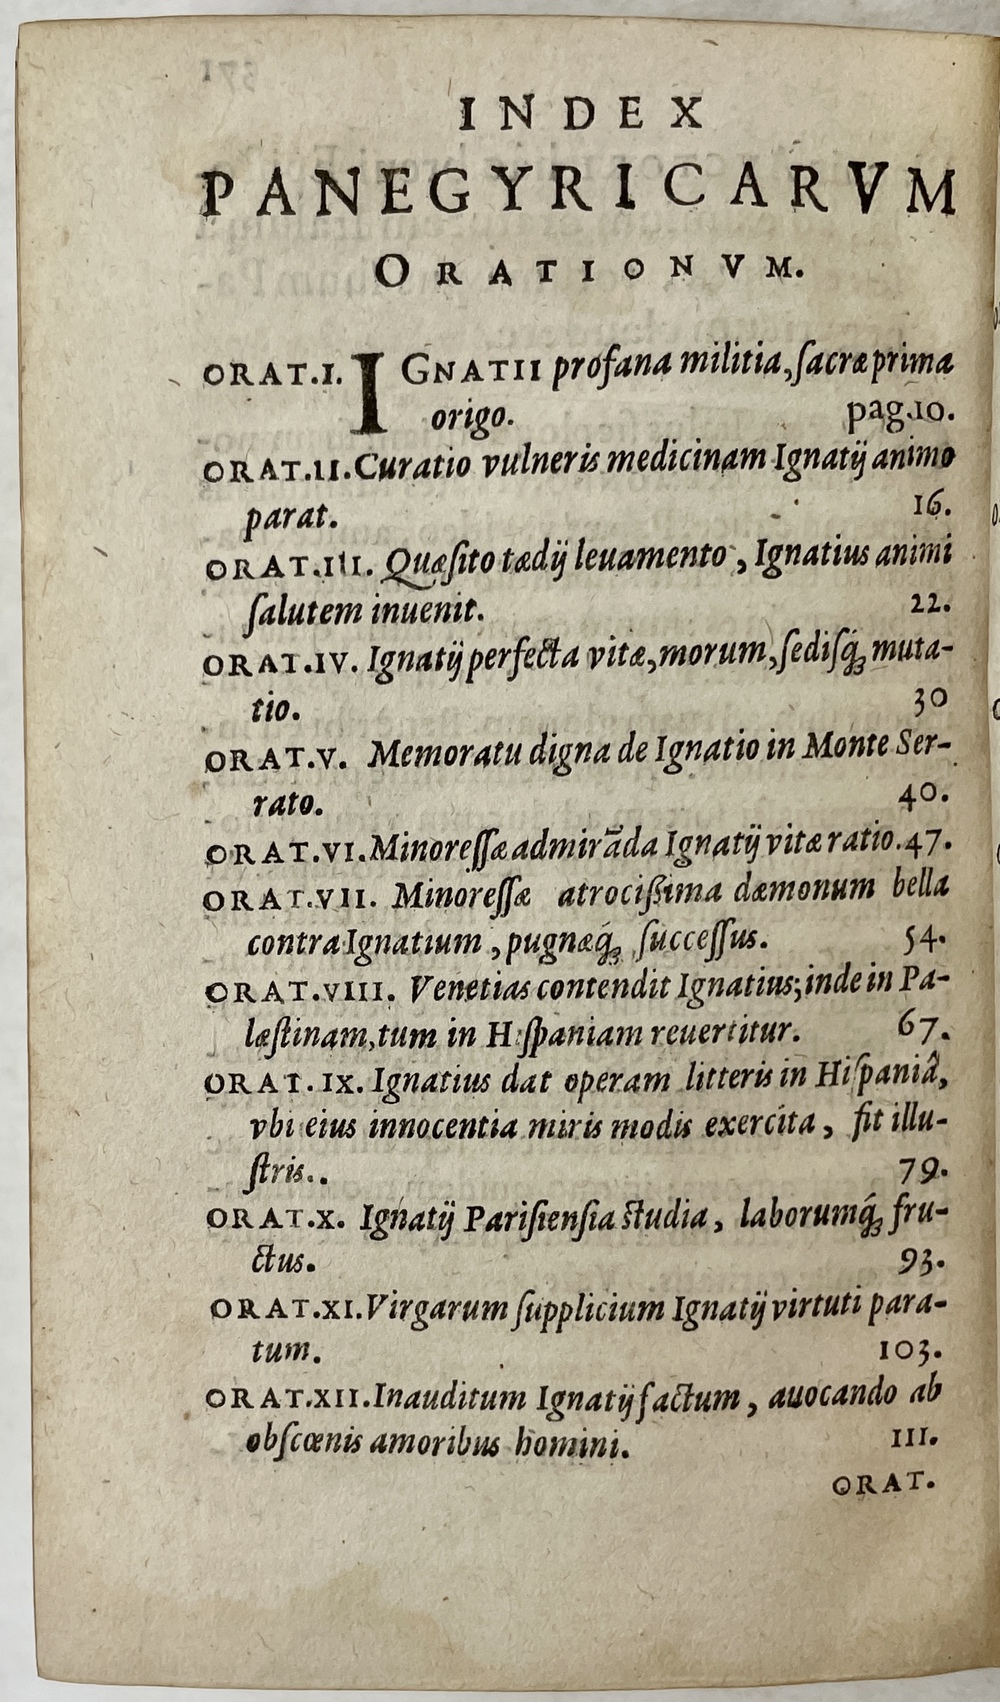 INDEX
PANEGYRICARVM
ORATIONVM.
ORAT.I. IGNATII profana militia, ſacræ prima
origo. pag.10.
ORAT.II. Curatio vulneris medicinam Ignatij animo
parat. 16.
ORAT.III. Quæſito tædij leuamento, Ignatius animi
ſalutem inuenit. 22.
ORAT.IV. Ignatij perfecta vitæ, morum, ſedisq́; muta-
tio. 30
ORAT.V. Memoratu digna de Ignatio in Monte Ser-
rato. 40.
ORAT.VI. Minoreſſæ admirāda Ignatij vitæ ratio. 47.
ORAT.VII. Minoreſſæ atrociſsima dæmonum bella
contra Ignatium, pugnæq́; ſucceſſus. 54.
ORAT.VIII. Venetias contendit Ignatius; inde in Pa-
læſtinam, tum in Hiſpaniam reuertitur. 67.
ORAT.IX. Ignatius dat operam litteris in Hiſpaniâ,
vbi eius innocentia miris modis exercita, fit illu-
ſtris.. 79.
ORAT.X. Ignatij Pariſienſia ſtudia, laborumq́; fru-
ctus. 93.
ORAT.XI. Virgarum ſupplicium Ignatij virtuti para-
tum. 103.
ORAT.XII. Inauditum Ignatij factum, auocando ab
obſcœnis amoribus homini. 111.
ORAT.